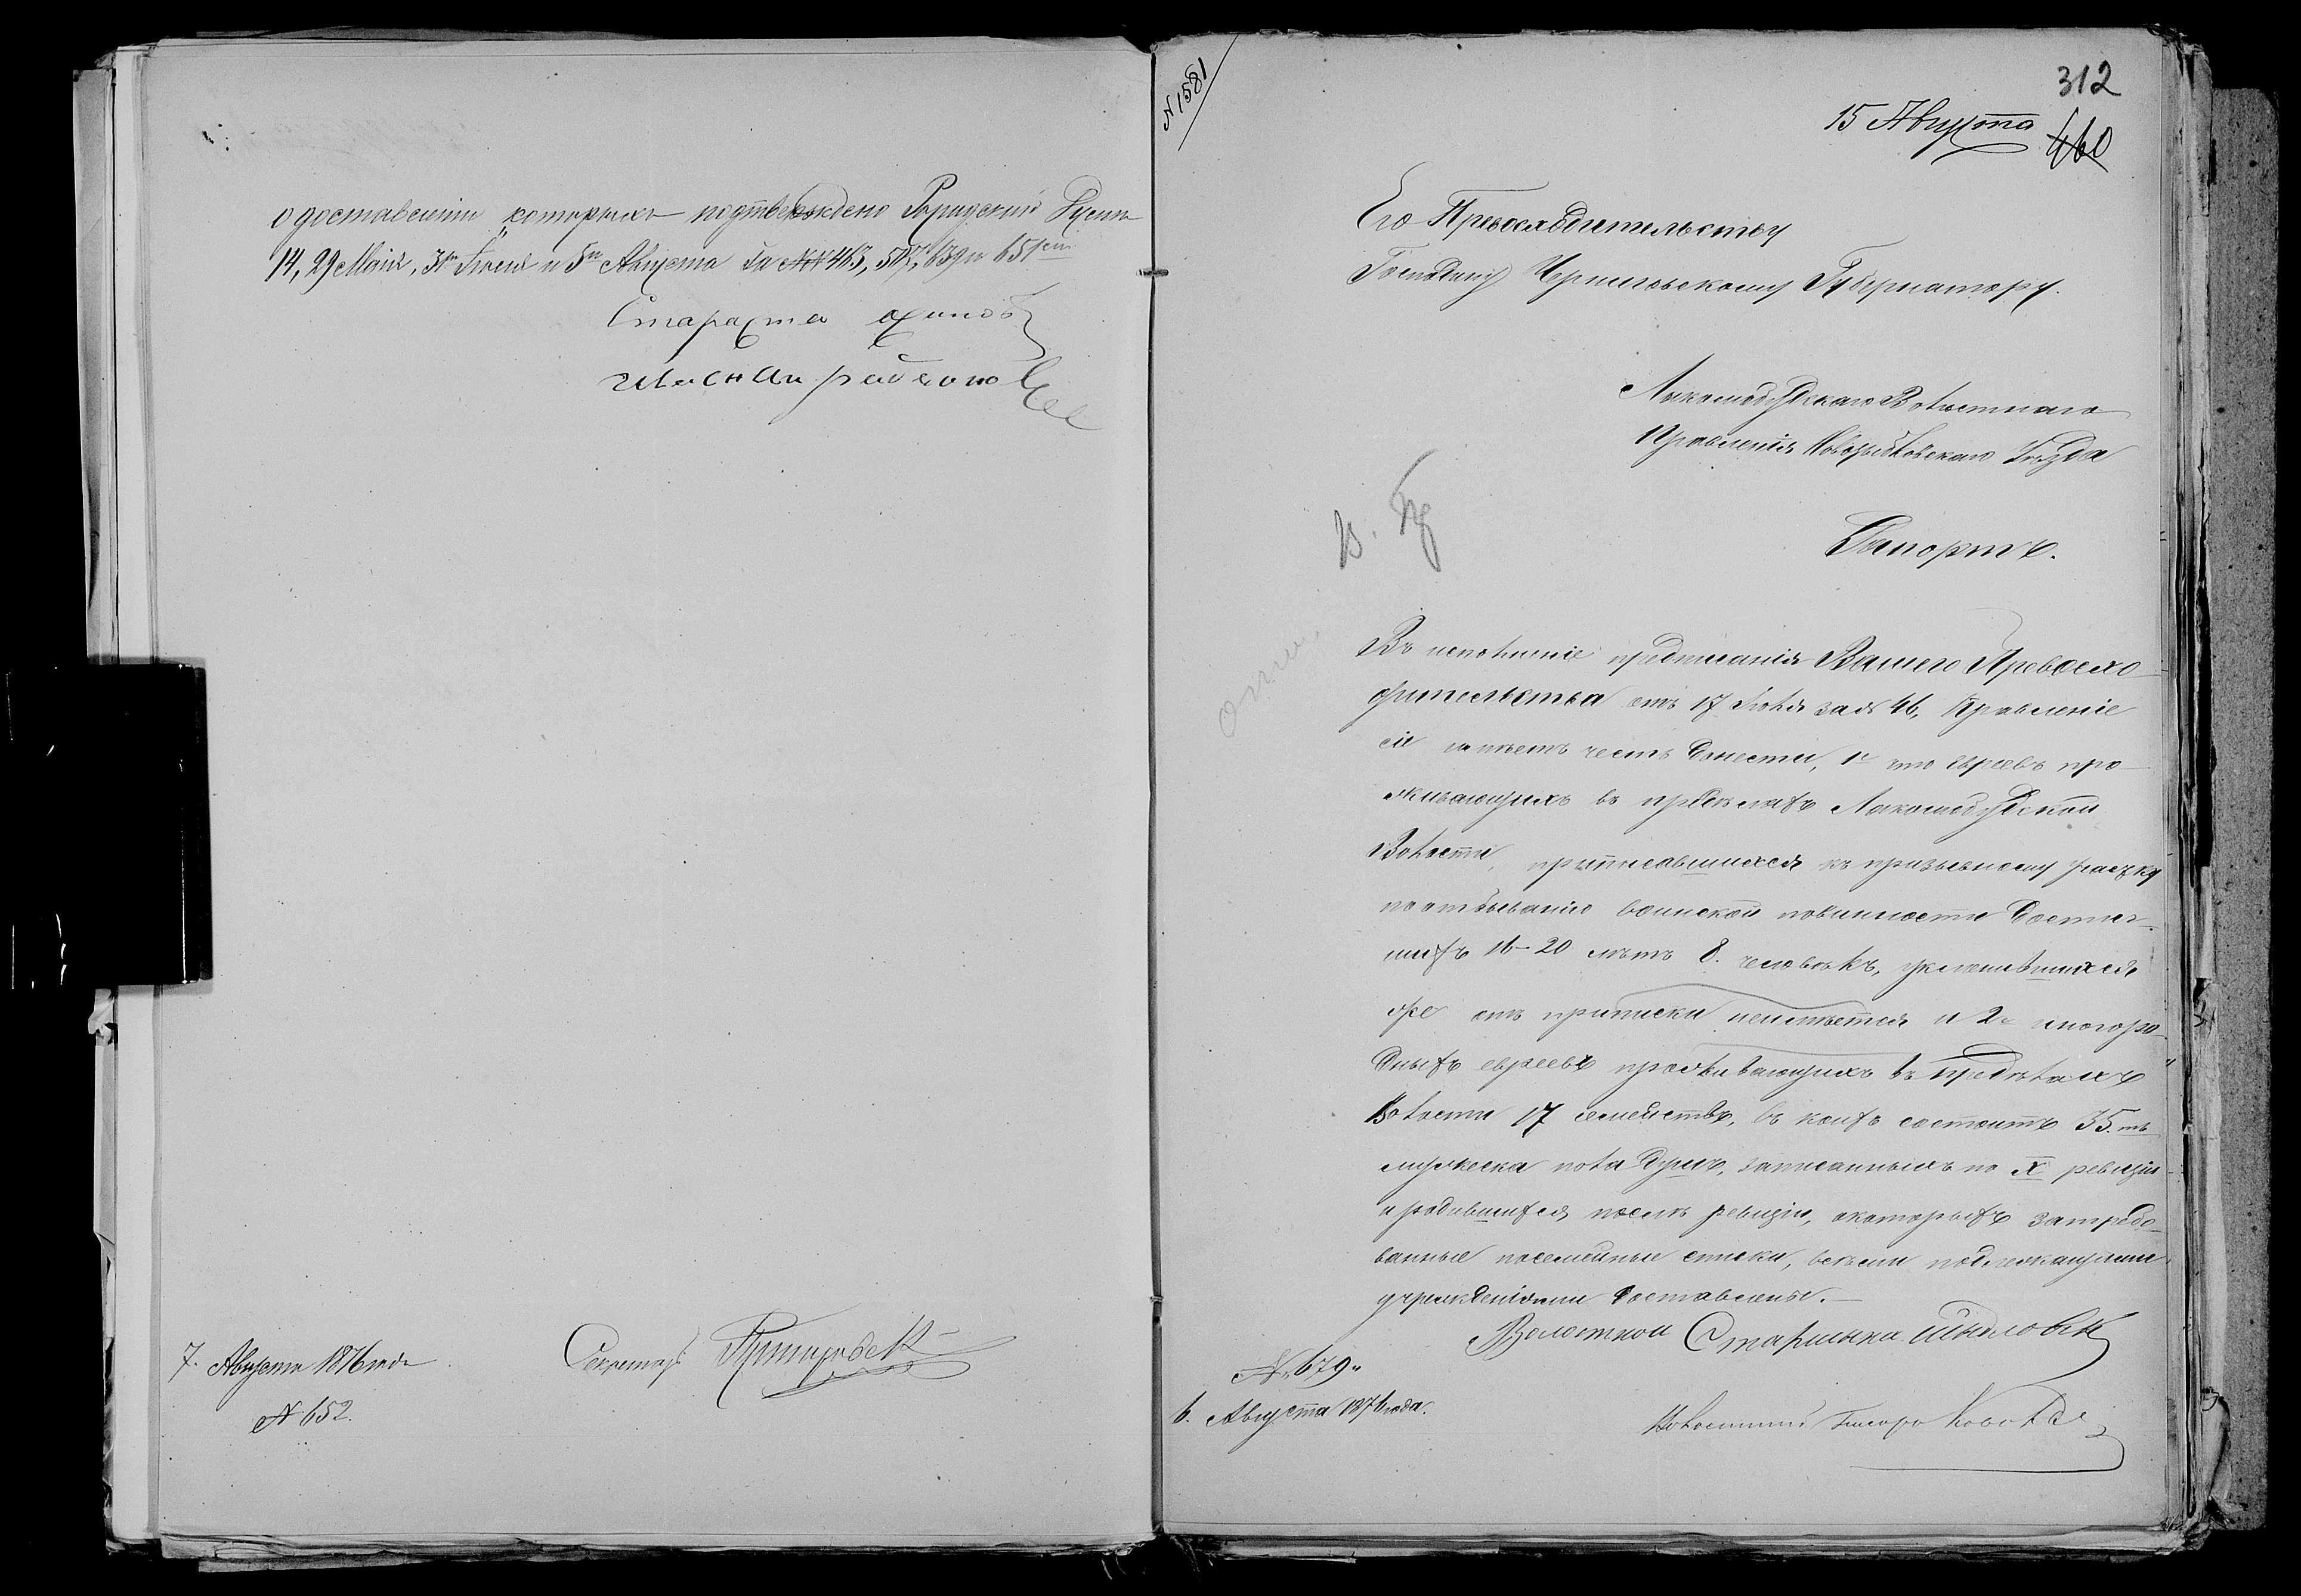 о доставленіи которыхъ подтверждено Городской
14, 29 Маія, 31го Іюля и 5го Августа за №№ 463, 517, 639 и 651
Староста
7. Августа 1876 года
№ 652.
Секретарь
№ 1581
312
15 Августа
460
Его Превосходительству
Господину Черниговскому Губернатору.
Волостнаго
Правленія Новозыбковскаго Уѣзда
Рапортъ.
Въ исполненіе предписанія Вашего Превосхо-
дительства отъ 17 Іюля за № 46, Правленіе
сіе имѣетъ честь донести, 1е что евреевъ про-
живающихъ въ предѣлахъ
Волости, приписавшихся къ призывному участку
по отбыванію воинской повинности достиг-
шихъ 16-20 лѣтъ 8. человѣкъ, уклонившихся
же отъ приписки неимѣется и 2е иногоро-
дныхъ евреевъ проживающихъ въ предѣлахъ
Волости 17 семействъ, въ коихъ состоитъ 35.ть
мужеска пола душъ, записанныхъ по X ревизіи
и родившихся послѣ ревизіи, о которыхъ затребо-
ванные посемейные списки, всѣми подлежащими
учрежденіями доставлены.
Волостной Старшина
№ 679
6. Августа 1876 года.
Волостный Писарь